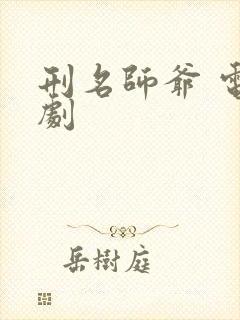 刑名師爺 電
劇
岳樹庭